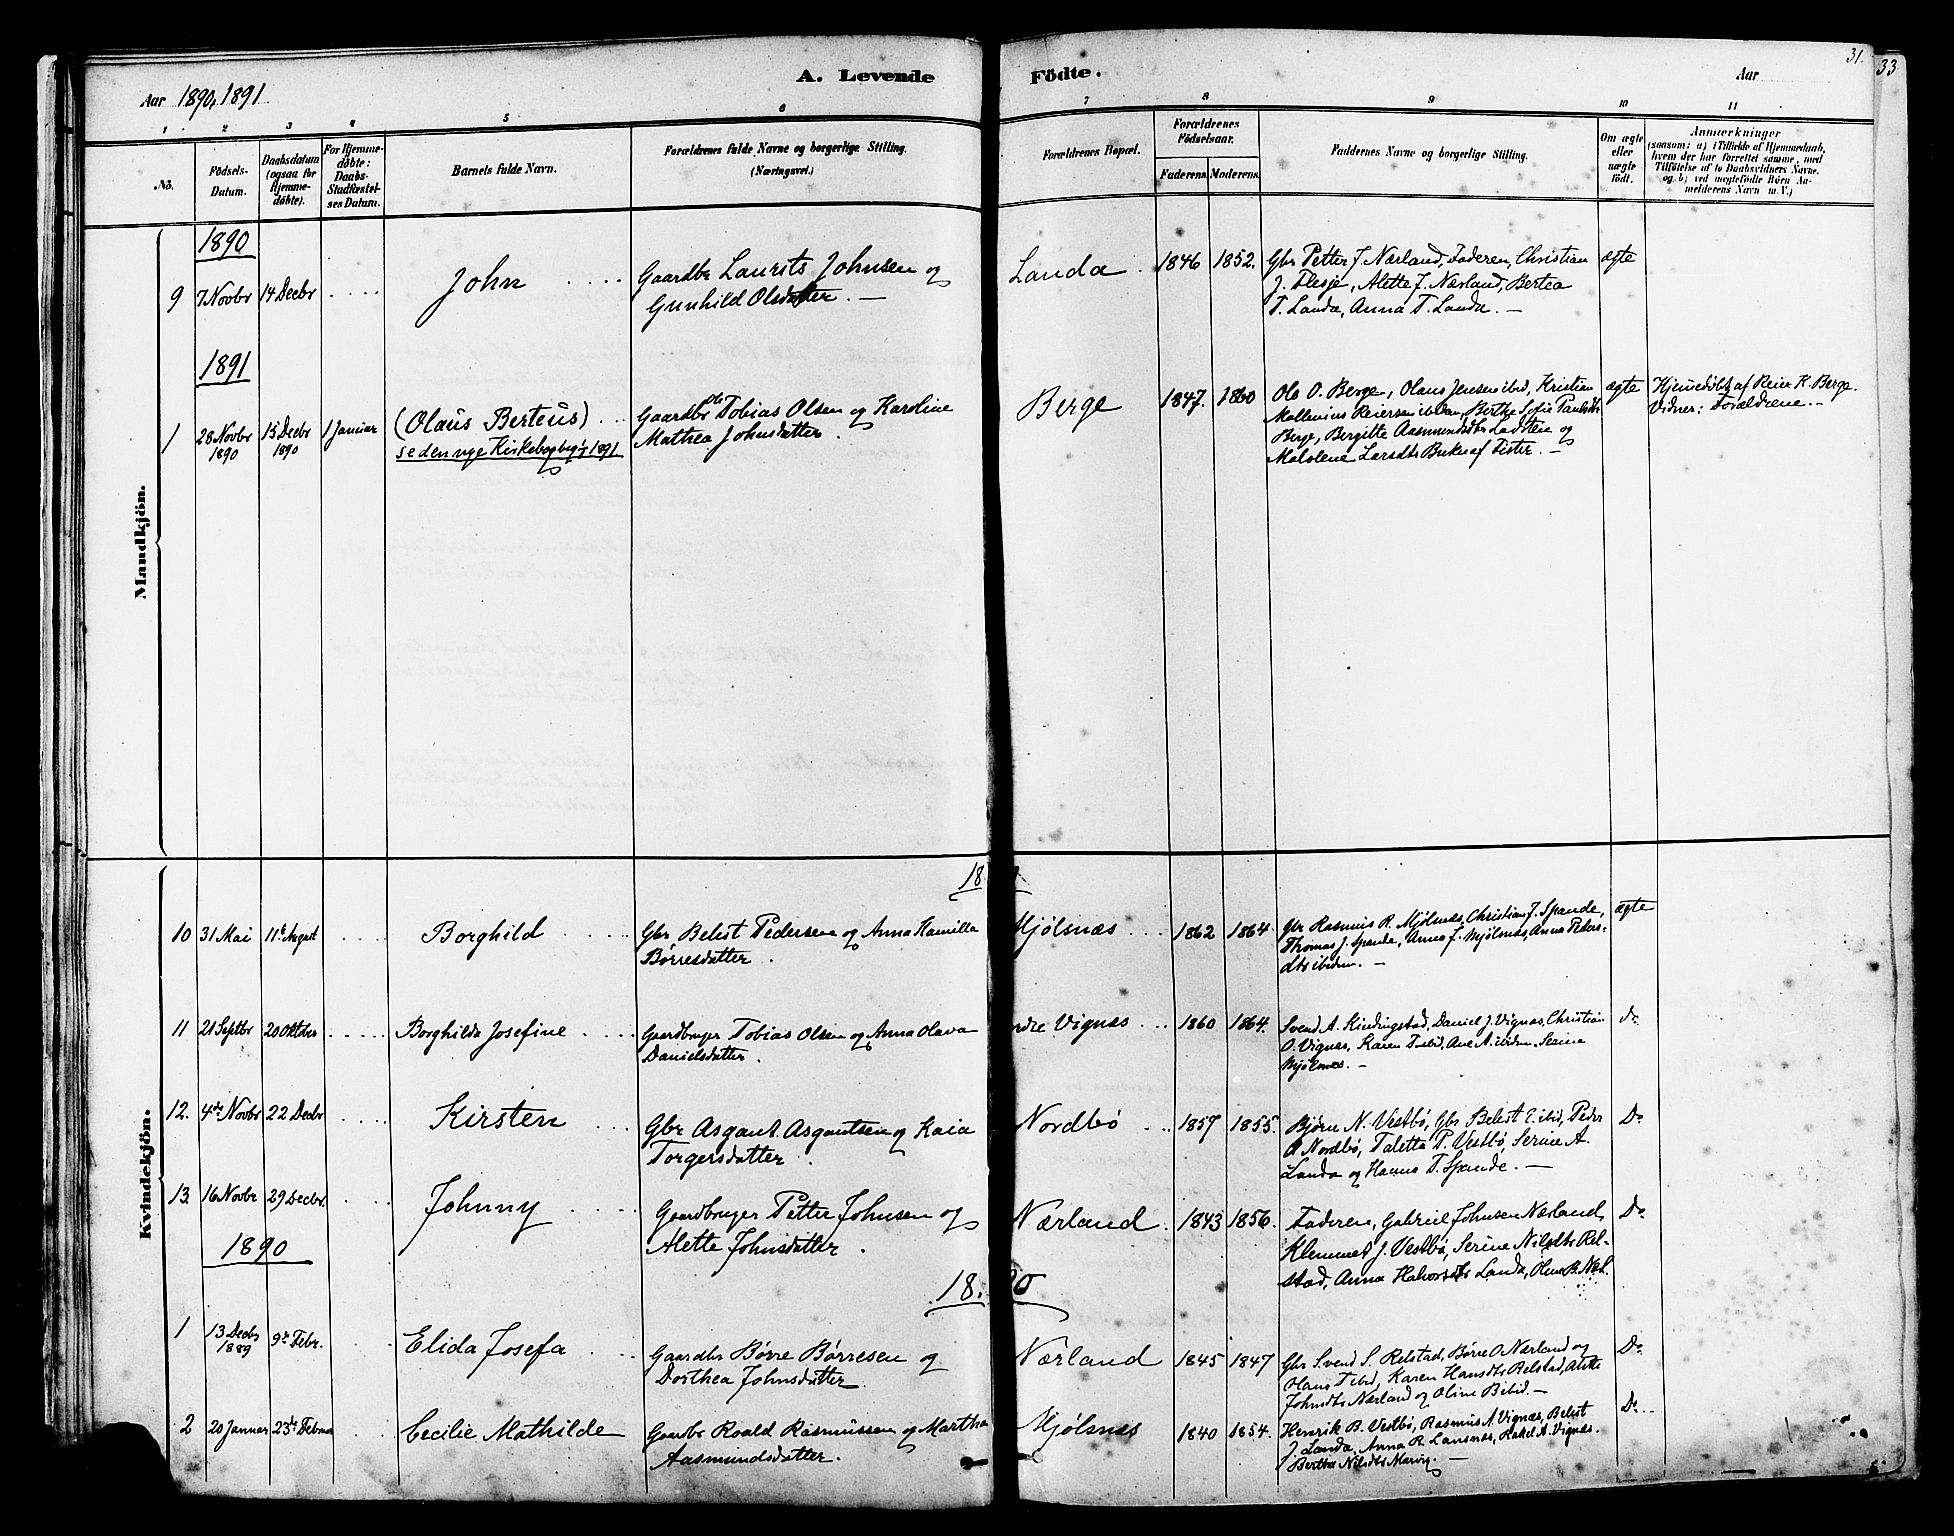 31.
33
A. Levende Födte.
Aar 1890, 1891
Aar
1 2 3 4 5 6 7 8 9 10 11
No.
Födsels-Datum.
Daabsdatum (ogsaa for Hjemme-döbte).
For Hjemme-döbte: Daabs-Stadfæstel-ses Datum.
Barnets fulde Navn.
Forældrenes fulde Navne og borgerlige Stilling. (Næringsvei.)
Forældrenes Bopæl.
Forældrenes Födselsaar.
Faderens. Moderens.
Faddernes Navne og borgerlige Stilling.
Om ægte eller uægte födt.
Anmærkninger
(saasom: a) i Tilfælde af Hjemmedaab, hvem der har forrettet samme, med Tilföielse af to Daabsvidners Navne, og b) ved uægtefödte Börn Anmelderens Navn m. V.)
Mandkjön.
1890
9 7 Novbr 14 Decbr John Gaardbr Laurits Johnsen og
Gunhild Olsdatter. —
Landa 1846 1852. Gbr Petter J. Nærland, Faderen, Christian ægte
J. Flesje, Alette J. Nærland, Bertea
T. Landa, Anna T. Landa. —
1891
1 28 Novbr 1890 15 Decbr 1890 1 Januar (Olaus Berteus)
se den nye Kirkebog 1891
Gaardbr Tobias Olsen og Karoline
Mathea Johnsdatter.
Berge 1847. 1860 Ole O. Berge, Olaus Jensen ibid, Kristian ægte
Mallenius Reiersen ibiden, Berthe Sofie
Berge, Bergitte Aasmundsdtr Ladstein og
Malolene Larsdtr Buke af Fister. —
Hjemedøbt af Reier K. Berge.
Vidner: Forældrene. —
Kvindekjön.
18
10 31 Mai 11te August Borghild Gbr Belest Pedersen og Anna Kamilla
Børresdatter.
Mjølsnæs 1862 1864 Gbr Rasmus R. Mjølsnæs, Christian J. Spande, ægte
Thomas J. Spande, Anna J. Mjølsnæs, Anna Peders-
dtr ibidem. —
11 21 Septbr 20 Oktober Borghilda Josefine Gaardbruger Tobias Olsen og Anna Olava
Danielsdatter.
ndre Vignæs 1860 1864. Svend A. Kindingstad, Daniel J. Vignæs, Christian do
O. Vignæs, Karen T. ibid, Ane A. ibidem, Serine
Mjølsnæs. —
12. 4de Novbr 22 Decbr Kirsten Gbr Asgaut Asgautsen og Kaia
Torgersdatter.
Nordbø 1857 1855. Bjørn N. Vestbø, Gbr Belest E. ibid, Peder Do
A Nordbø, Taletta P. Vestbø, Serine A.
Landa og Hanna T. Spande. —
13. 16 Novbr 29 Decbr. Johnny Gaardbruger Petter Johnsen og
Alette Johnsdatter.
Nærland 1843 1856. Faderen, Gabriel Johnsen Nærland, Do
Klemmet J. Vestbø, Serine Nilsdtr Rel-
stad, Anna Halvorsdtr Landa, Olene B. Næl.
1890
1890
1 13 Decbr 1889 9de Febr. Elida Josefa Gaardbr Børre Børresen og
Dorthea Johnsdatter.
Nærland 1845 1847 Gbr Svend S. Relstad, Børre O Nærland og Do
Hans T ibid, Karen Hansdtr Relstad, Alette
Johnsdtr Nærland og Oline B ibid. —
2 20 Januar 23de Februar Cecilie Mathilde Gaardbr Roald Rasmussen og Martha
Aasmundsdatter.
Mjølsnæs 1840 1854. Henrik B. Vestbø, Rasmus A. Vignæs, Belest Do
J. Landa, Anna R. Lansnæs, Rakel A. Vignæs.
Bertha Nilsdtr Marvig. —